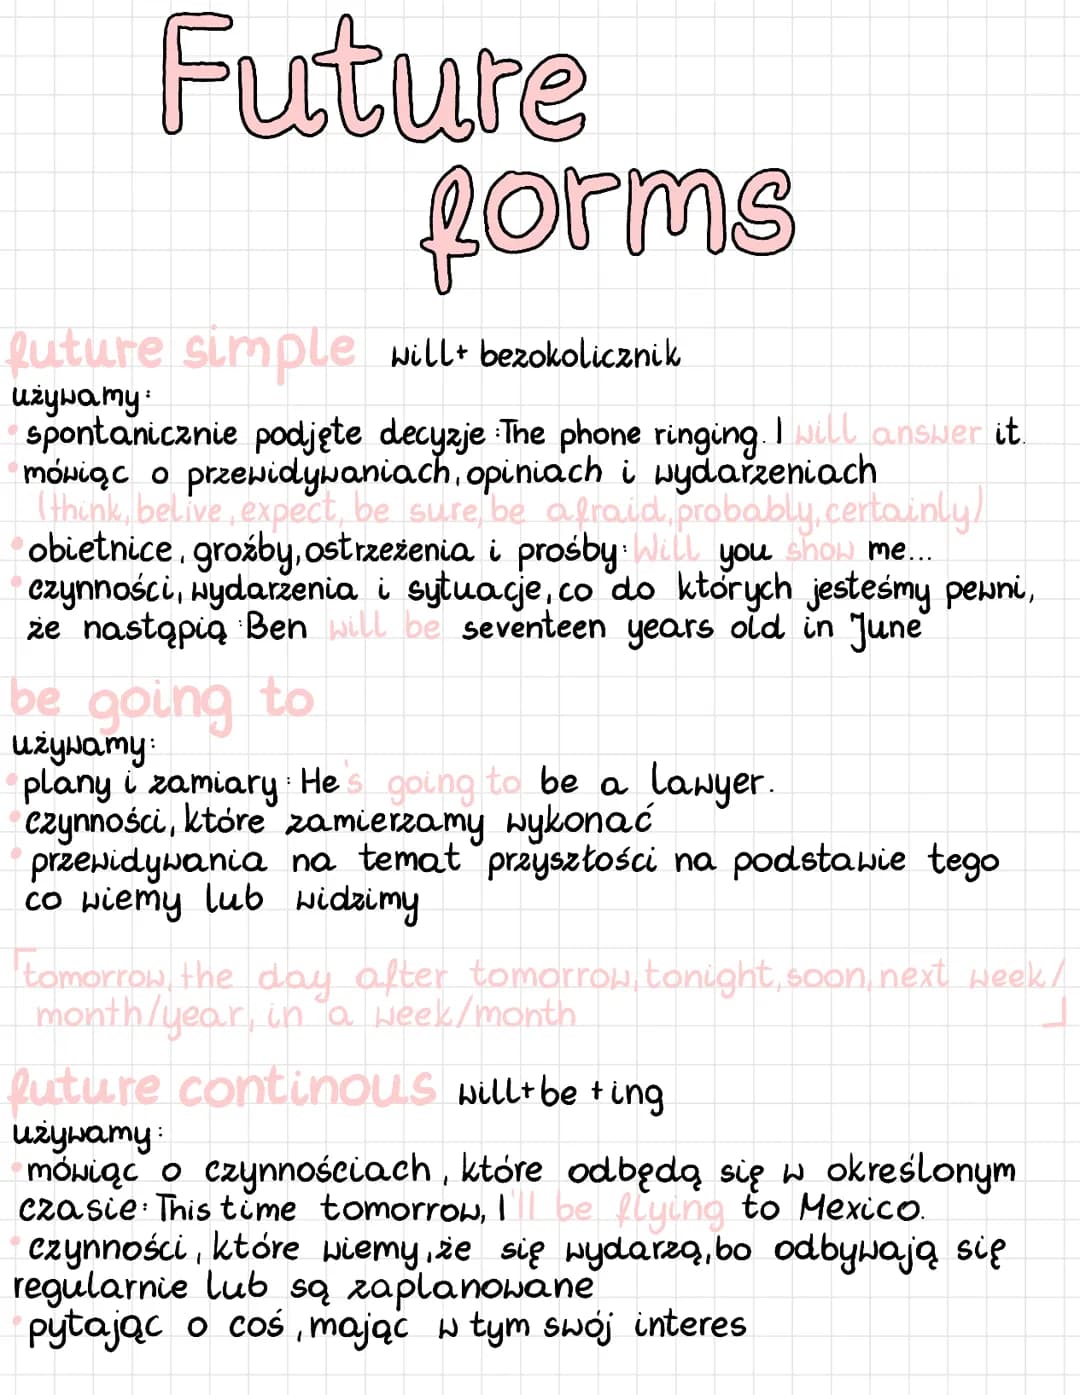 Future
forms
future simple will+ bezokolicznik
używamy:
• spontanicznie podjęte decyzje :The phone ringing. I will answer it.
• mówiąc o przewidywaniach, opiniach i wydarzeniach
(think, belive, expect, be sure, be afraid, probably, certainly)
• obietnice, groźby, ostrzeżenia i prośby: Will you show me...
• czynności, wydarzenia i sytuacje, co do których jesteśmy pewni,
że nastąpią :Ben will be seventeen years old in June
be going to
używamy:
• plany i zamiary: He's going to be a lawyer.
• czynności, które zamierzamy wykonać
• przewidywania na temat przyszłości na podstawie tego
co wiemy lub widzimy
「tomorrow, the day after tomorrow, tonight, soon, next week/
month/year, in a week/month 」
future continous will+be +ing
używamy:
• mówiąc o czynnościach, które odbędą się w określonym
czasie: This time tomorrow, I'll be flying to Mexico.
• czynności, które wiemy, że się wydarzą, bo odbywają się
regularnie lub są zaplanowane
• pytając o coś, mając w tym swój interes